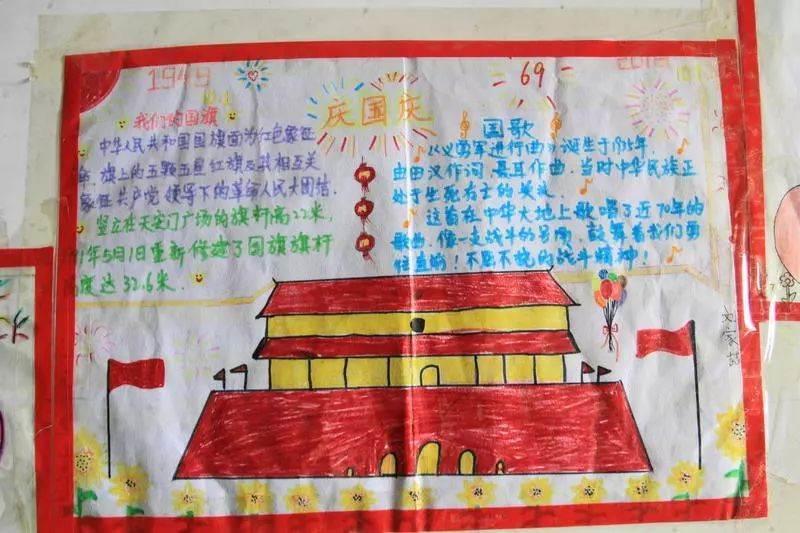 1949
庆国庆
69
2018
我们的国旗
中华人民共和国国旗面为红色象征
旗上的五颗五星红旗及其相互关
象征共产党领导下的革命人民大团结.
竖立在天安门广场的旗杆高22米,
1年5月1日重新修建了国旗旗杆
度达32.6米.
国歌
《义勇军进行曲》诞生于1935年.
由田汉作词 聂耳作曲. 当时中华民族正
处于生死存亡的关头
这首在中华大地上歌唱了近70年的
歌曲. 像一支战斗的号角, 鼓舞着我们勇
往直前! 不屈不挠的战斗精神!